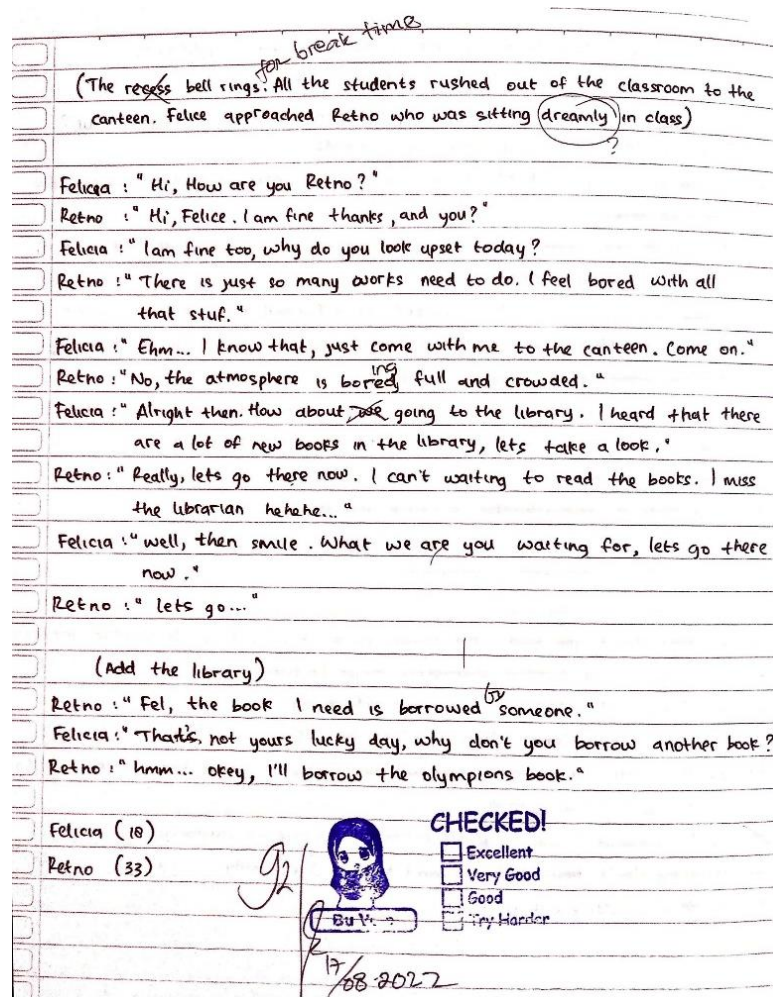 for break time
(The recess bell rings. All the students rushed out of the classroom to the
canteen. Felice approached Retno who was sitting dreamly in class)
?
Felicia : " Hi, How are you Retno ? "
Retno : " Hi, Felice. I am fine thanks, and you? "
Felicia : " I am fine too, why do you look upset today ?
Retno : " There is just so many works need to do. I feel bored with all
that stuf. "
Felicia : " Ehm... I know that, just come with me to the canteen. Come on. "
ing
Retno : " No, the atmosphere is bored, full and crowded. "
Felicia : " Alright then. How about we going to the library. I heard that there
are a lot of new books in the library, lets take a look. "
Retno : " Really, lets go there now. I can't waiting to read the books. I miss
the librarian hehehe... "
Felicia : " well, then smile. What we are you waiting for, lets go there
now. "
Retno : " lets go... "
(Add the library)
by
Retno : " Fel, the book I need is borrowed someone. "
Felicia : " That's, not yours lucky day, why don't you borrow another book ?
Retno : " hmm... okey, I'll borrow the olympions book. "
Felicia (18)
Retno (33)
92
CHECKED!
Excellent
Very Good
Good
Try Harder
Bu
17/08-2022